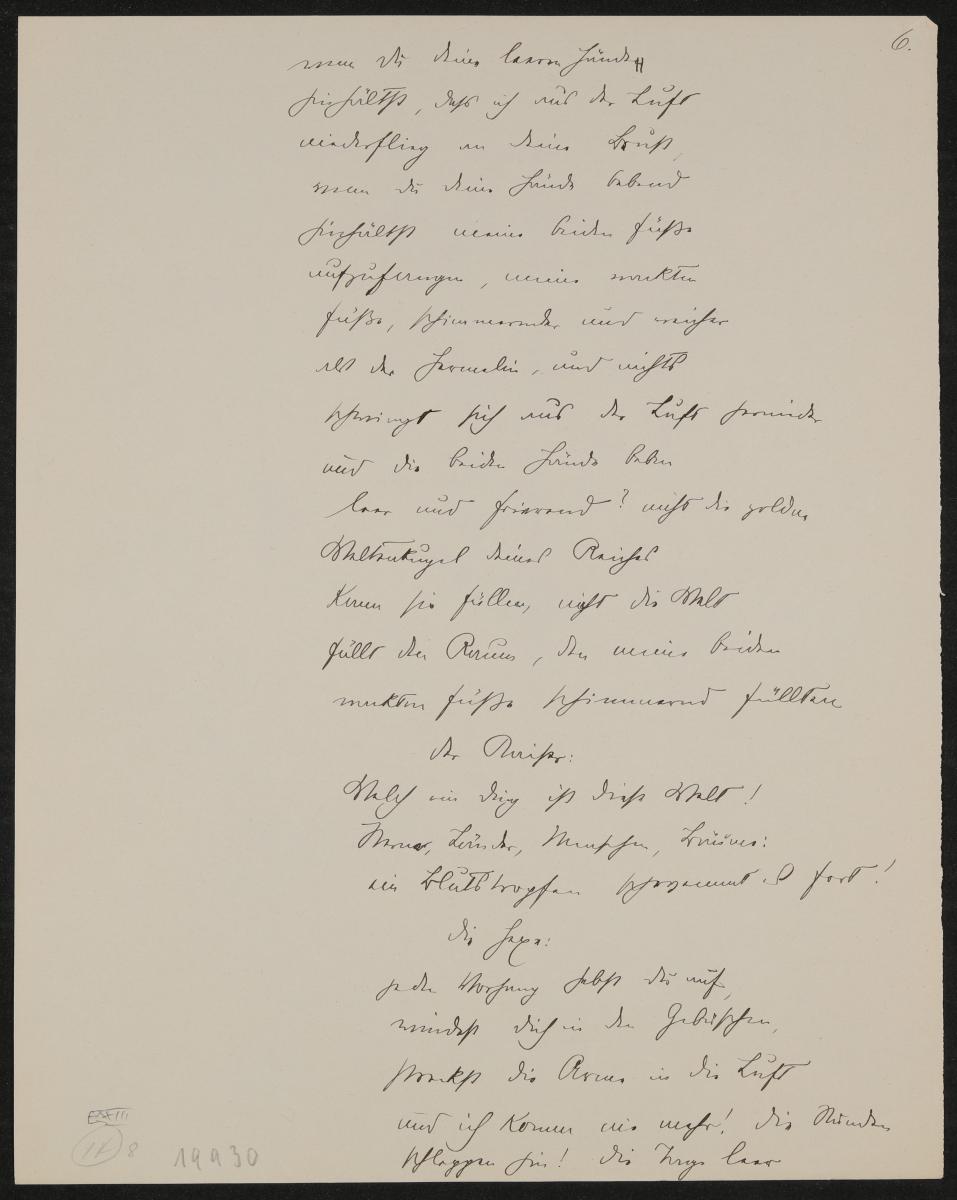 6.
wenn du deine leeren Hände
hinhältst, dass ich aus der Luft
niederflieg an deine Brust,
wenn du deine Hände bebend
hinhältst meine beiden Füße
aufzufangen, meine nackten
Füße, schimmernder und weicher
als der Hermelin, und nichts
schwingt sich aus der Luft hernieder
und die beiden Hände beben
leer und frierend? nicht die goldne
Weltenkugel deines Reiches
Kann sie füllen, nicht die Welt
füllt den Raum, den meine beiden
nackten Füße schimmernd füllten
der Kaiser:
Welch ein Ding ist diese Welt!
Sterne, Länder, Menschen, Bäume:
ein Blutstropfen schwemmt es fort!
die Hexe:
jeden Vorhang hebst du auf,
windest dich in den Gebüschen,
streckst die Arme in die Luft
und ich komme nie mehr! die Stunden
schleppen hin! die Tage leer
8
19930